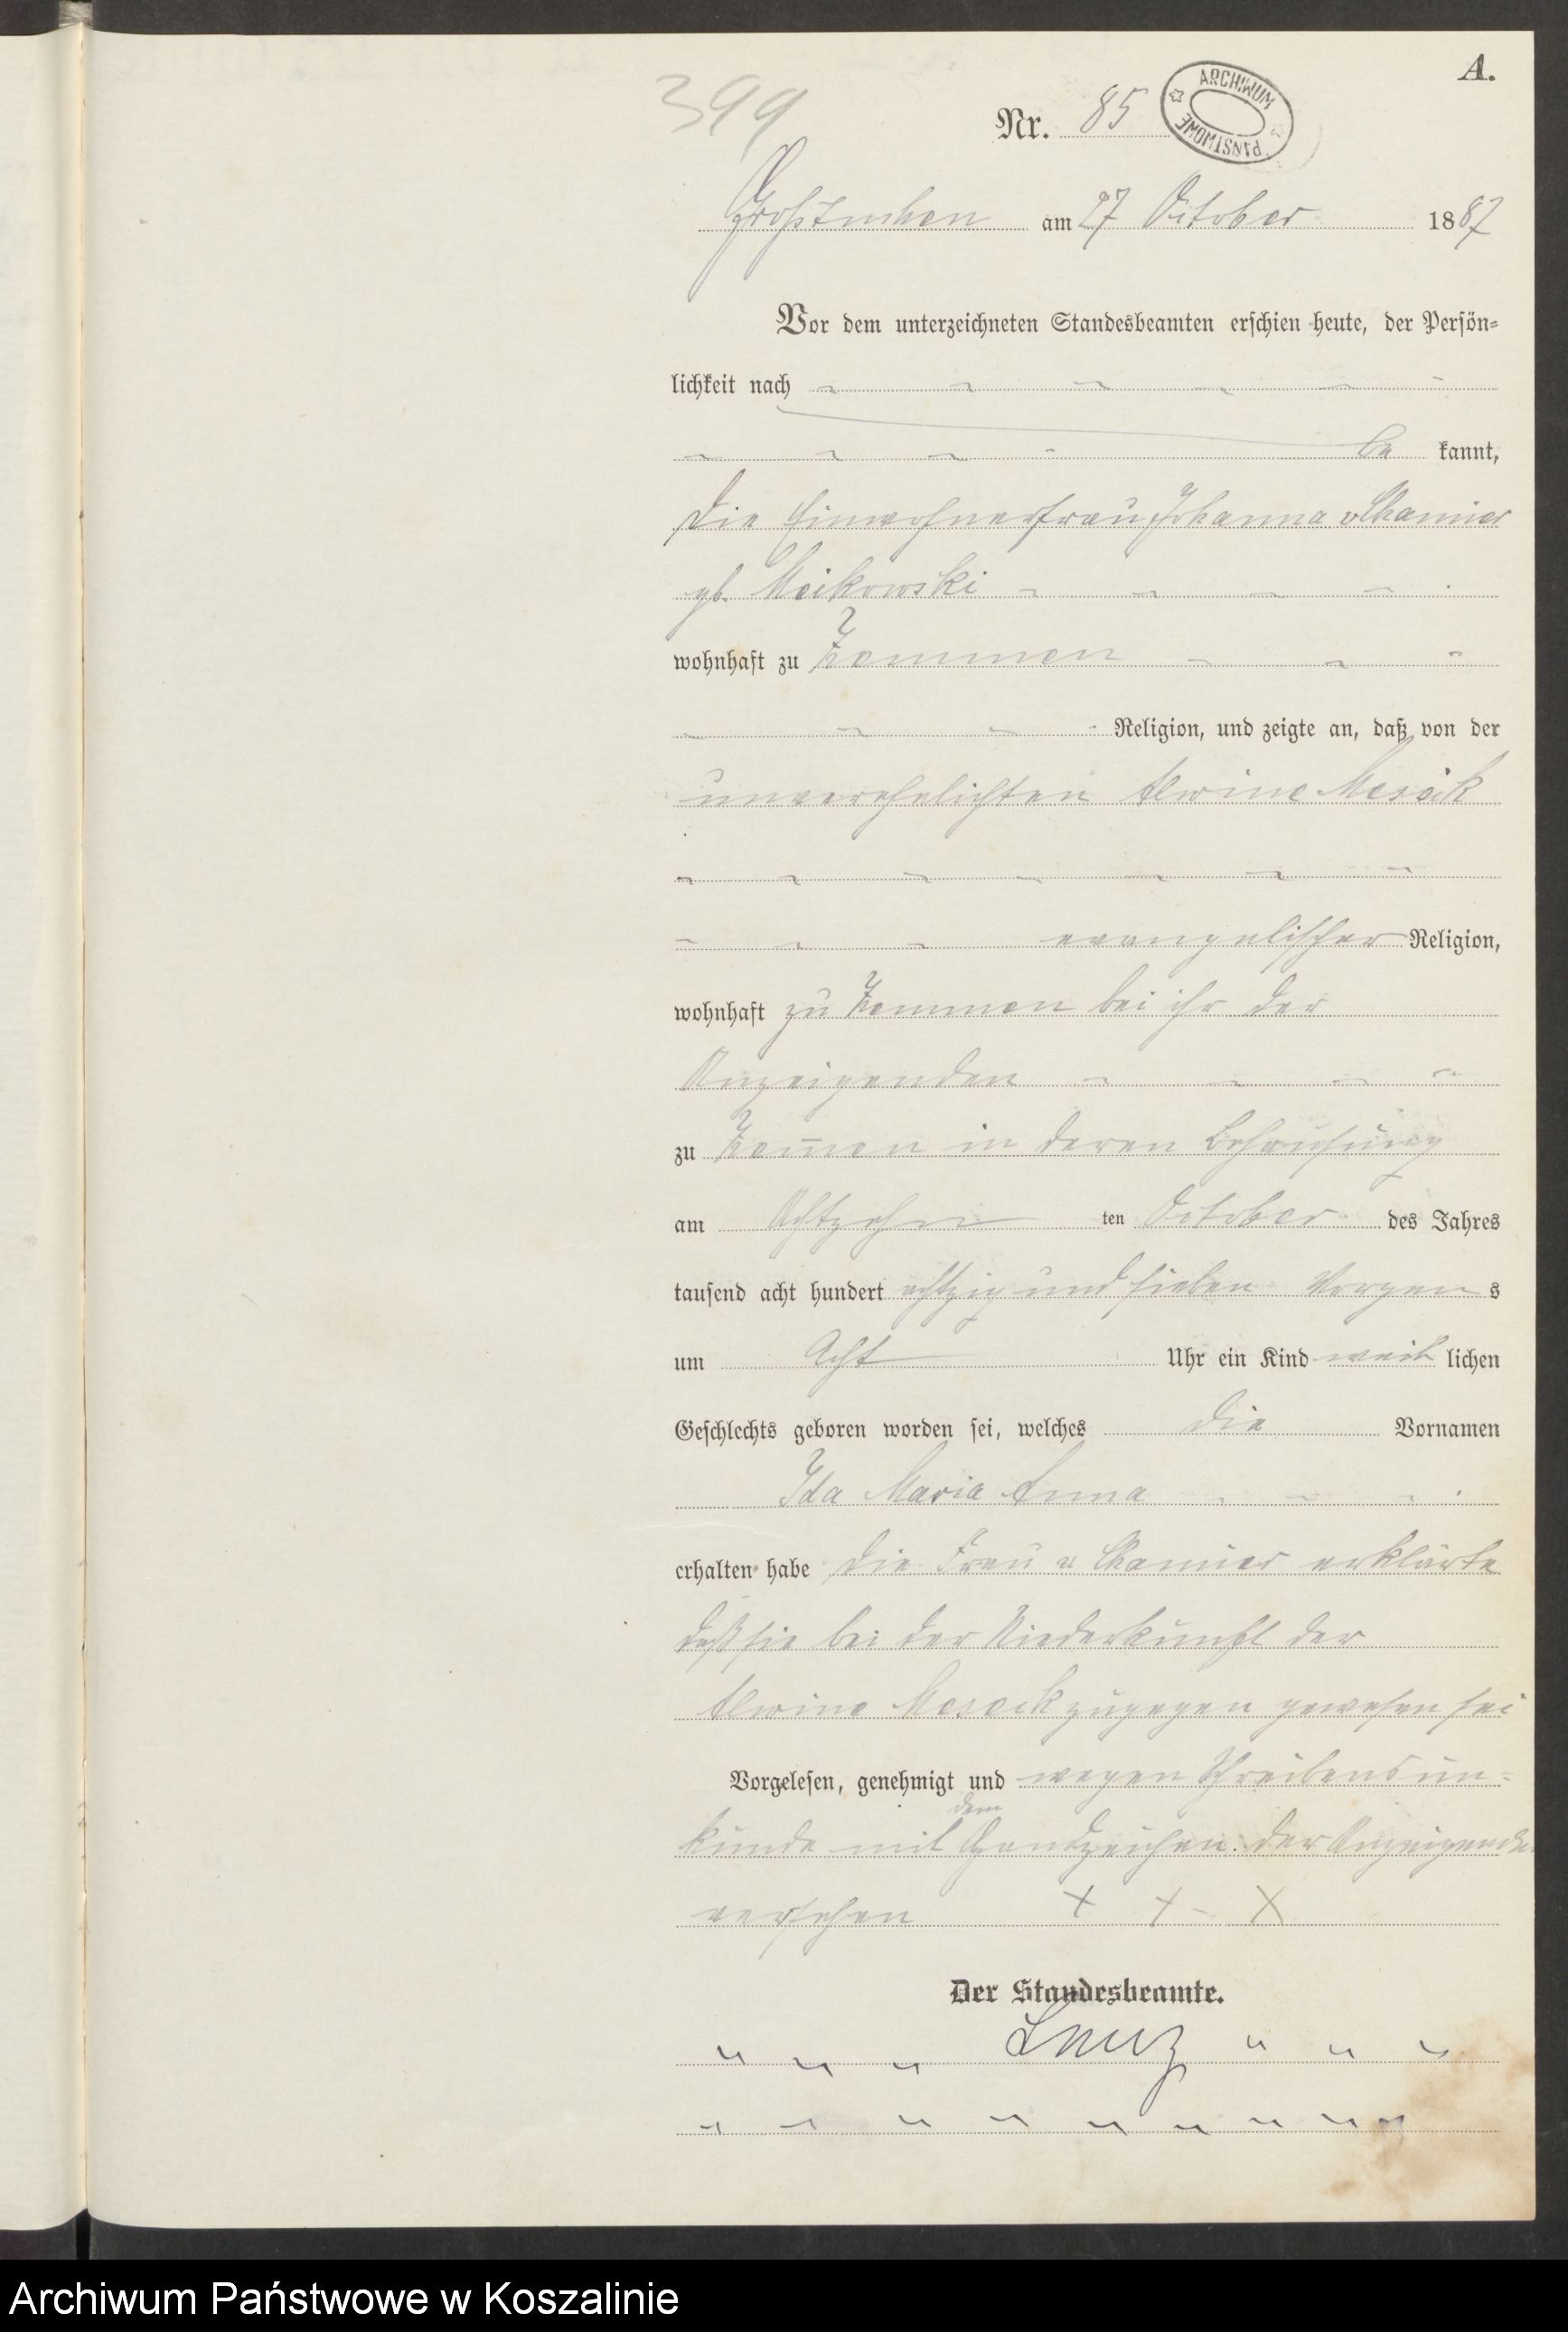 A.
399
Nr. 85
ARCHIWUM PAŃSTWOWE
Großtuchen am 27 October 1887
Vor dem unterzeichneten Standesbeamten erschien heute, der Persön-
lichkeit nach
be kannt,
die Einwohnerfrau Johanna v Chamier
gb. Moikowski
wohnhaft zu Zemmen
Religion, und zeigte an, daß von der
unverehelichten Alwine
evangelischer Religion,
wohnhaft zu Zemmen bei ihr der
Anzeigenden
zu Zem̅en in deren Behausung
am Achtzehn ten October des Jahres
tausend acht hundert achtzig und sieben Morgen s
um Acht Uhr ein Kind weib lichen
Geschlechts geboren worden sei, welches die Vornamen
Ida Maria Anna
erhalten habe die Frau v Chamier erklärte
daß sie bei der Niederkunft der
Alwine zugegen gewesen sei
Vorgelesen, genehmigt und wegen Schreibensun-
kunde mit dem Handzeichen der Anzeigenden
versehen + + - X
Der Standesbeamte.
Archiwum Państwowe w Koszalinie